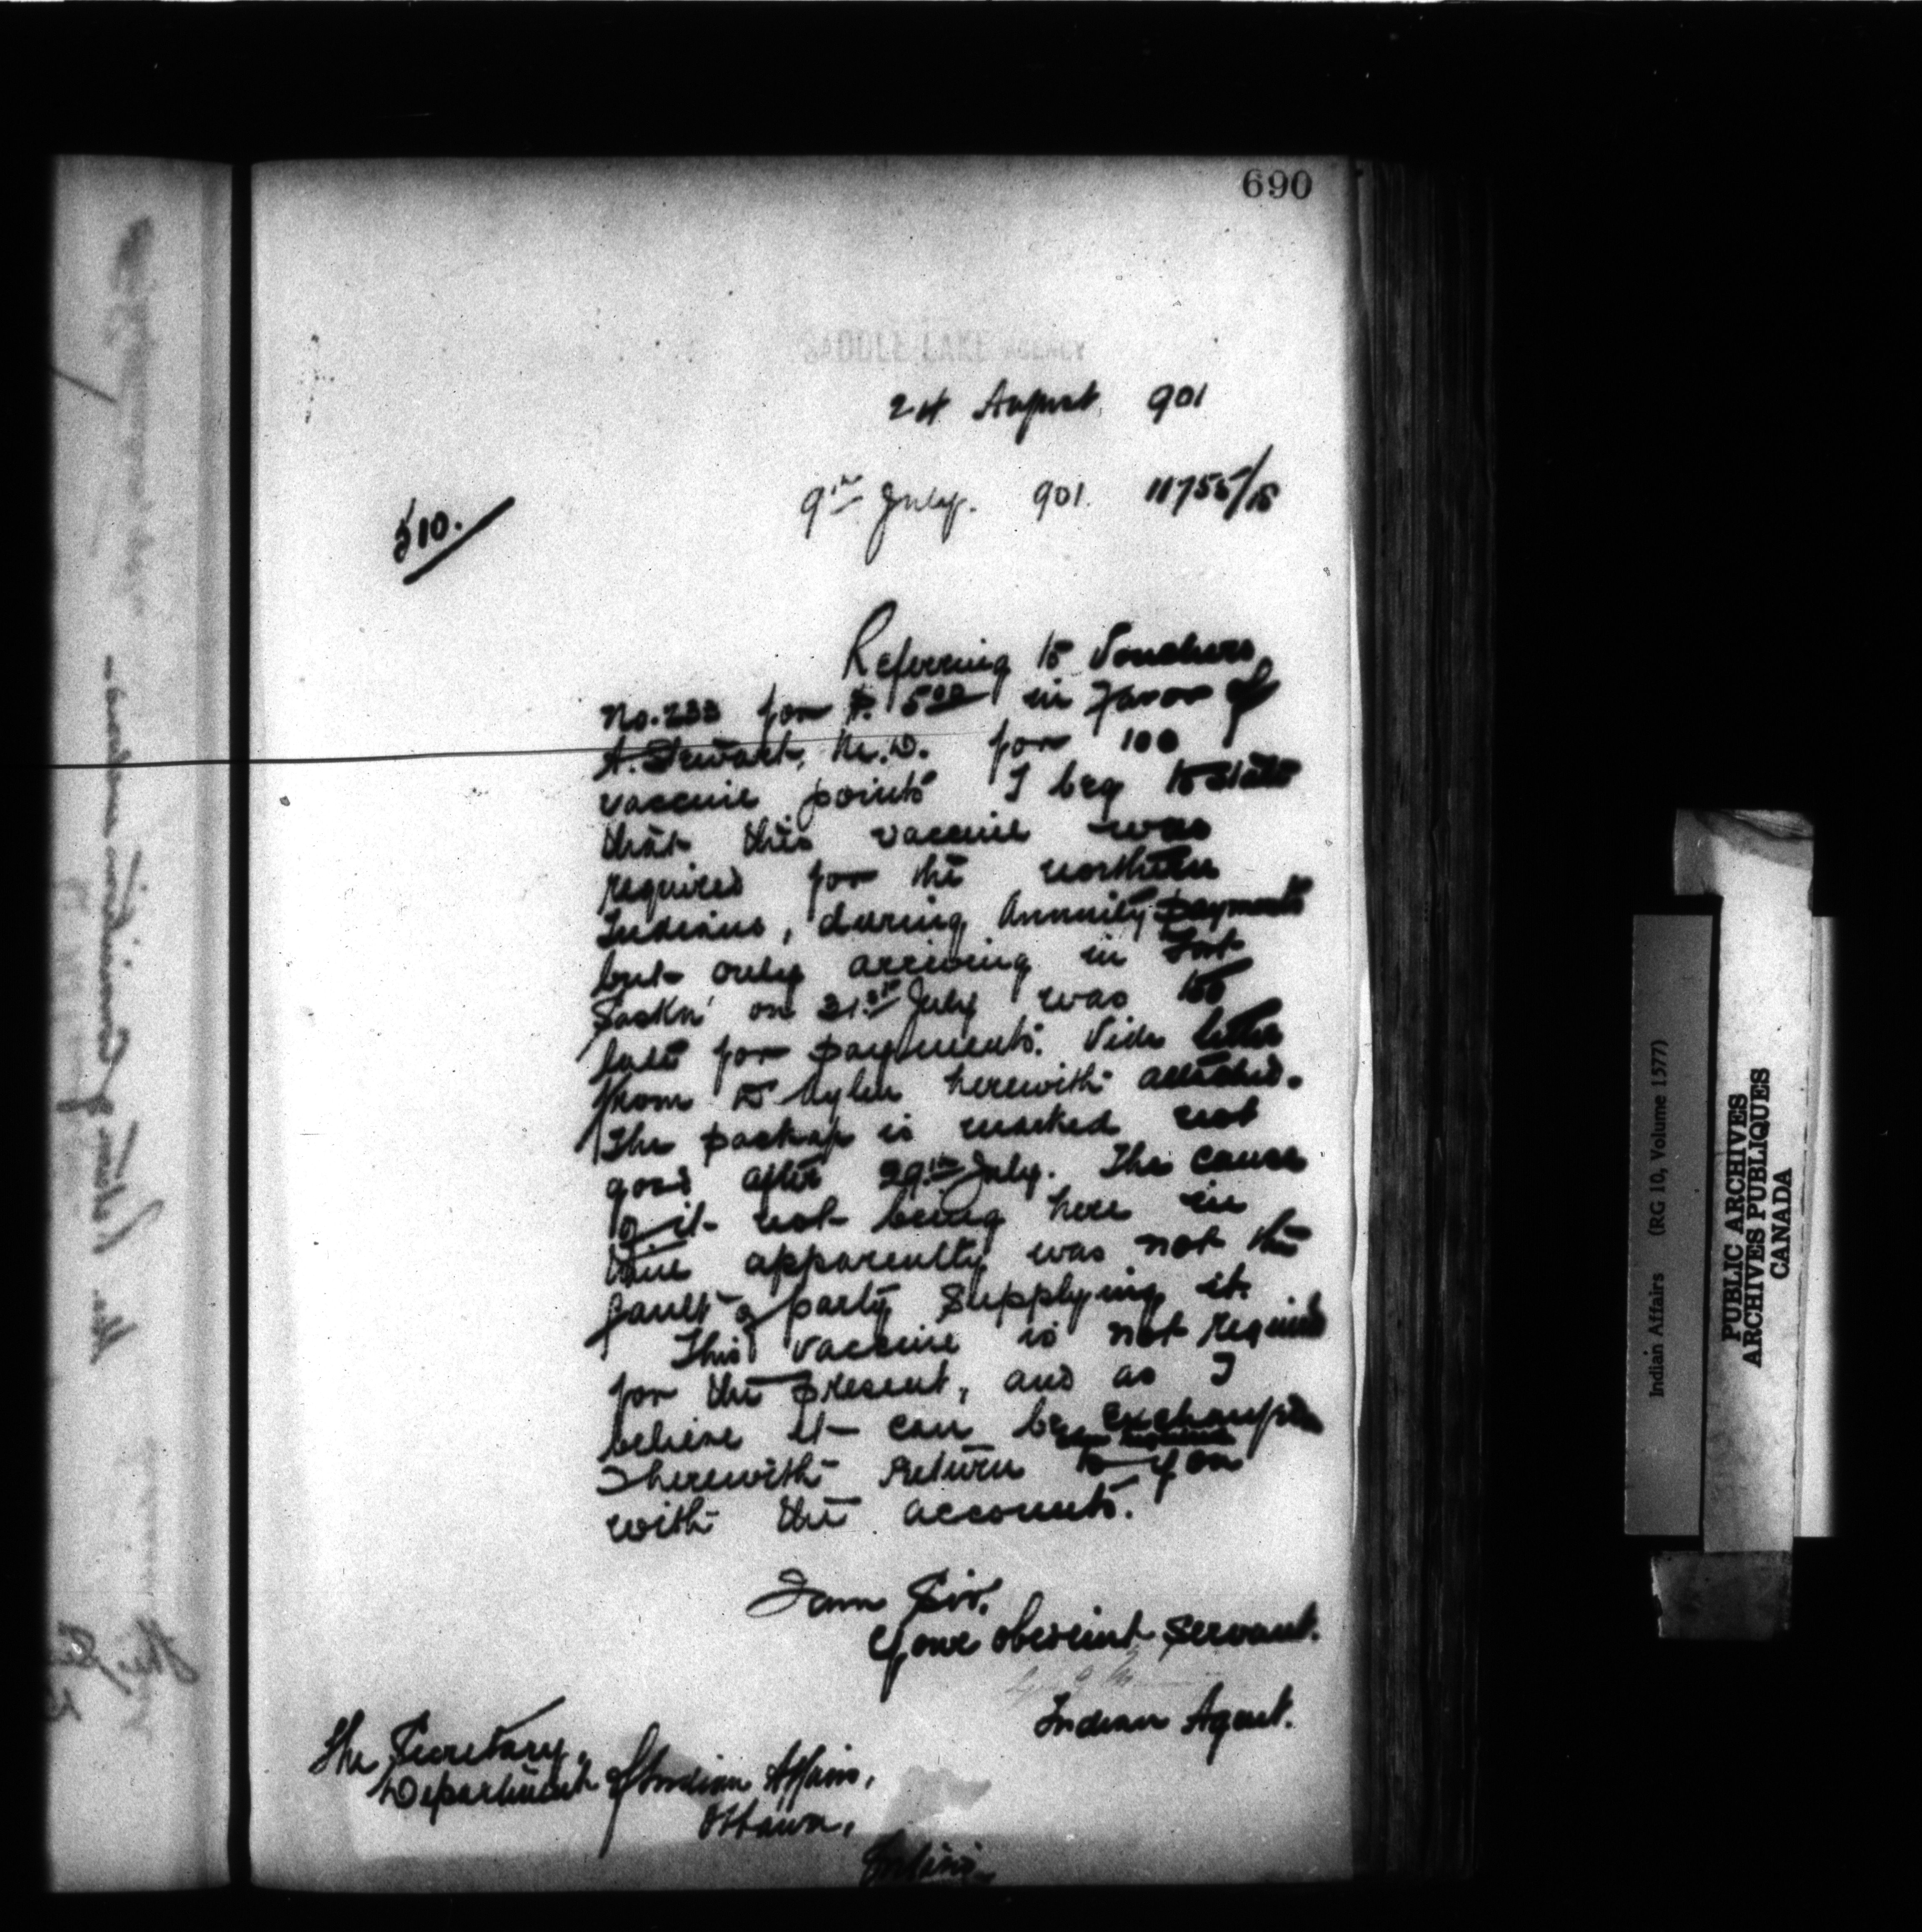 690
SADDLE LAKE AGENCY
24 August 901
9th July. 901. 11755/15
510.
Referring to Vouchers
No. 233 for $. 5.00 in Favor of
A. Stewart, M.D. for 100
vaccine points I beg to state
that this vaccine was
required for the northern
Indians, during Annuity payments
but only arriving in Fort
Saskn' on 31st July was too
late for payments. Vide letter
from herewith attached.
The package is marked not
good after 29th July. The cause
of it not being here in
time apparently was not the
fault of party supplying it.
This vaccine is not required
for the present, and as I
believe it can be exchanged
when required
I herewith return to you
with the accounts.
I am Sir,
Your obedient Servant.
Indian Agent.
The Secretary,
Department of Indian Affairs,
Ottawa,
Ontario.
Indian Affairs (RG 10, Volume 1577)
PUBLIC ARCHIVES
ARCHIVES PUBLIQUES
CANADA